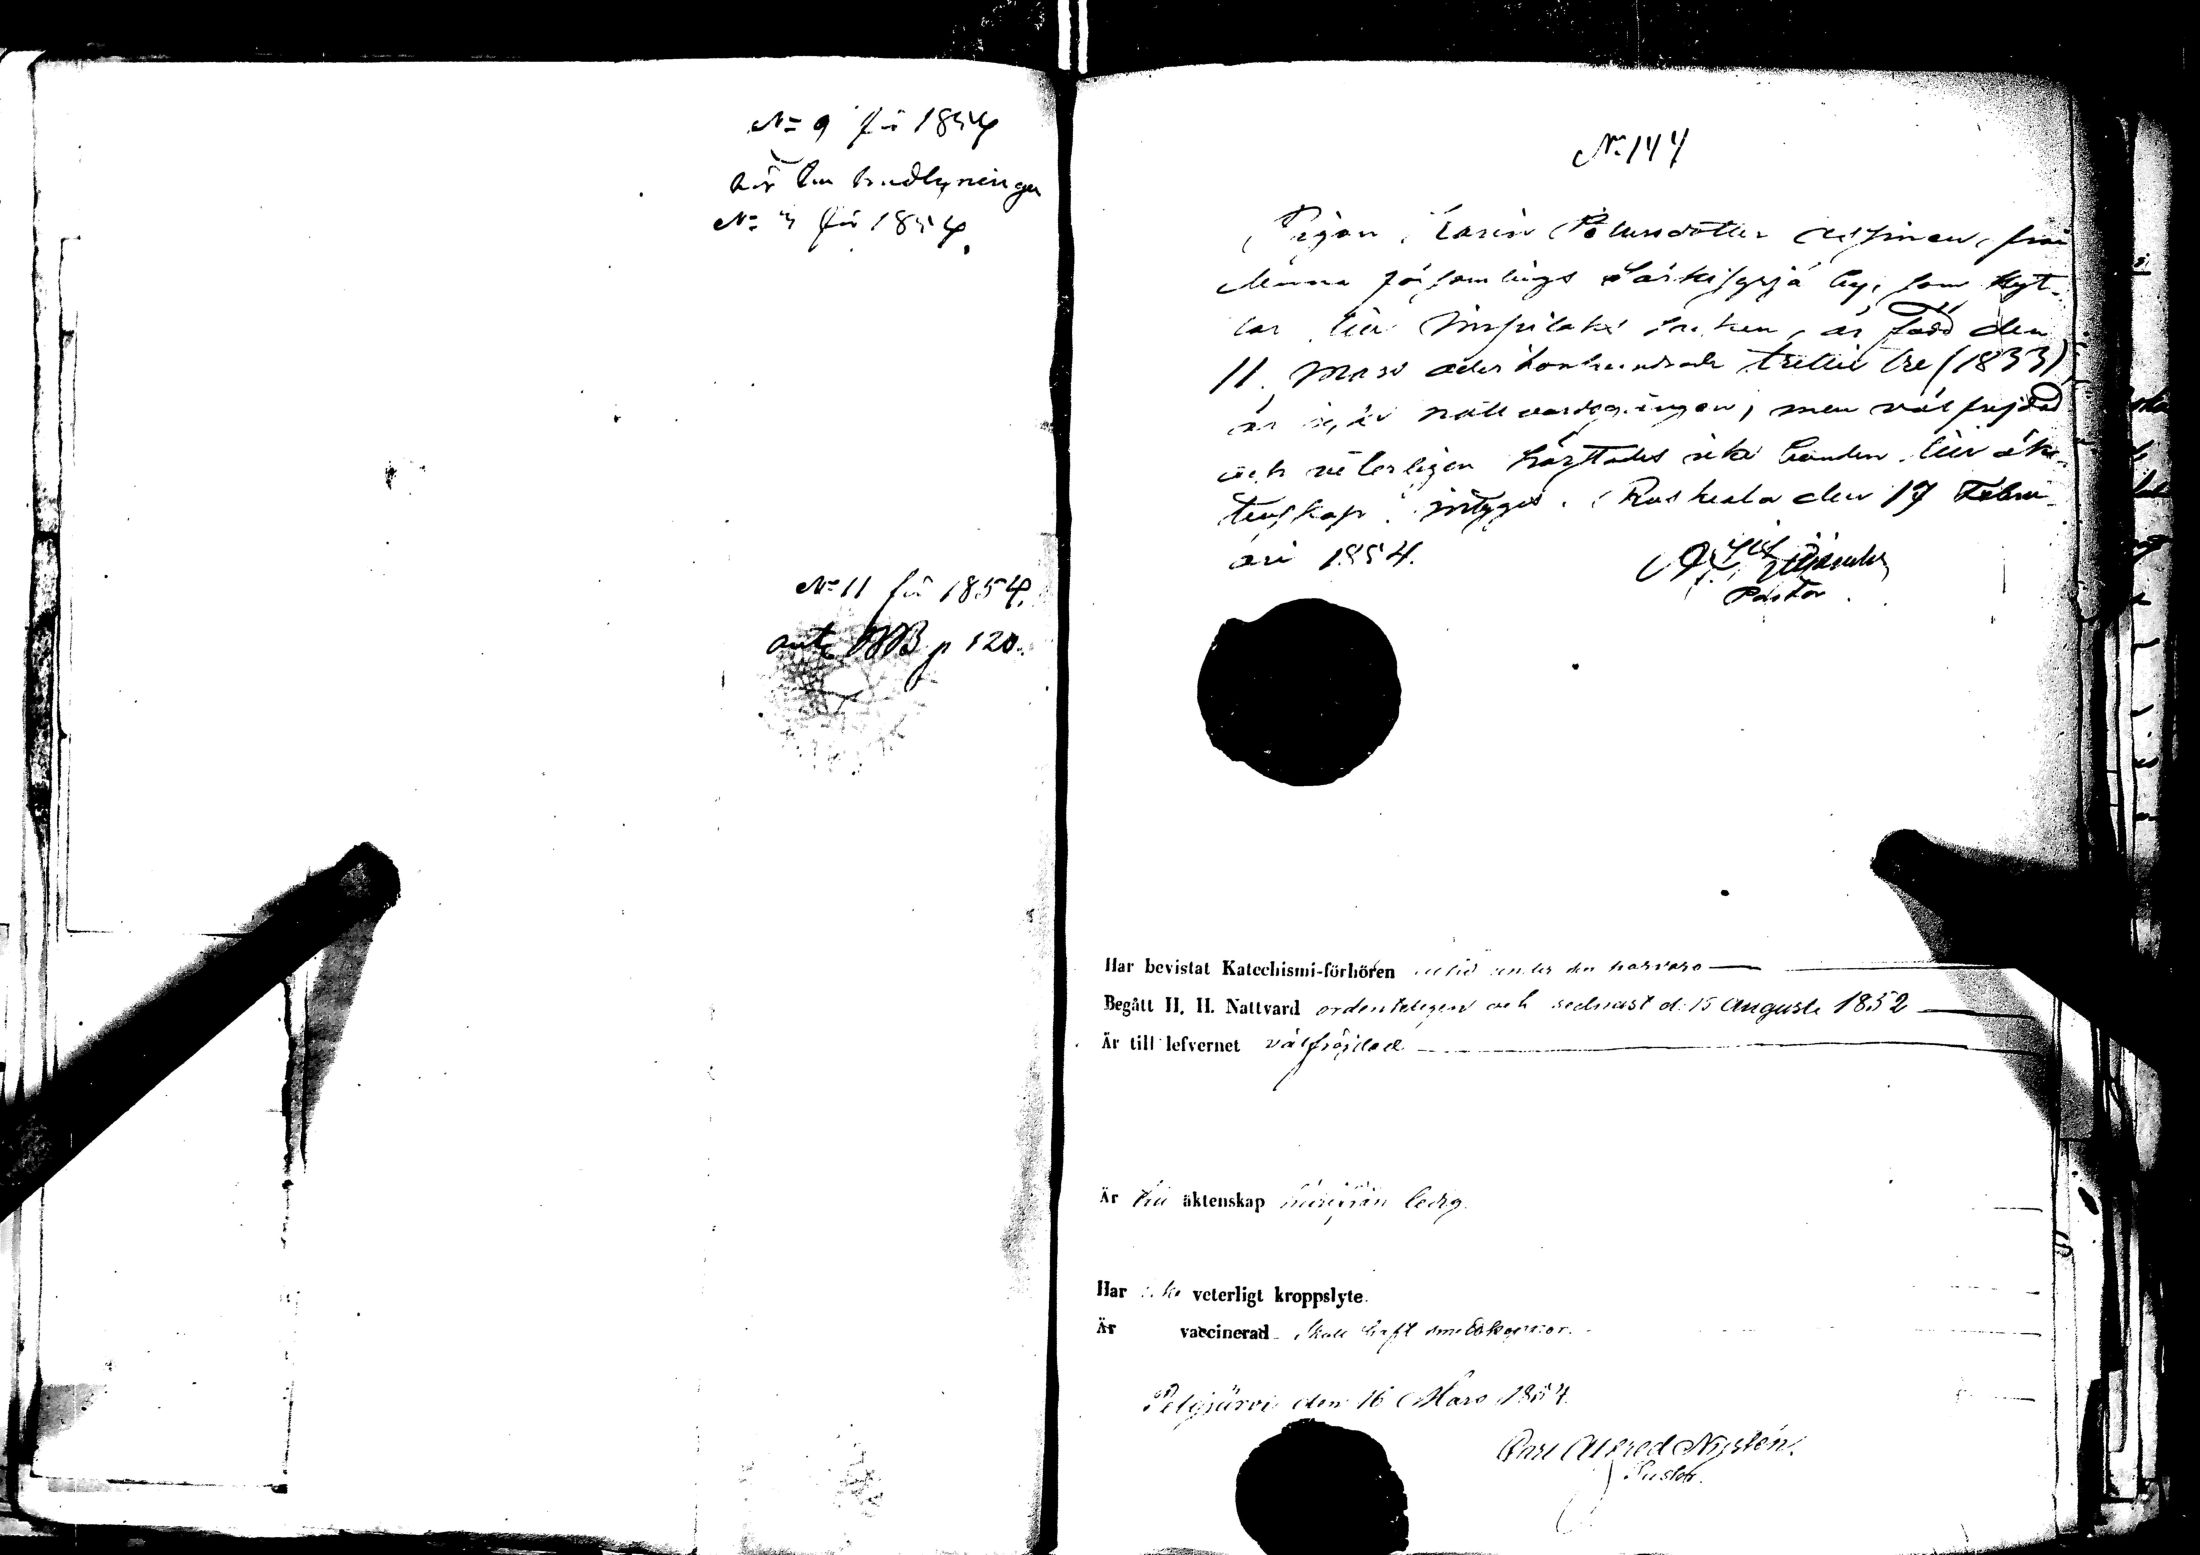 No 9 för 1854
hör till Inflyttningar
No 3 för 1854.
No 11 för 1854.
ant. MB p 120.
No 144
Pigan Karin Petersdotter från
denna församlings by, som flyt-
tar till socken, är född den
11 Mars adertonhundrade trettio tre (1833)
är nattvardsgången, men väl frejdad
och veterligen icke bunden till äk-
tenskap intygas. Ruskeala den 17 Febru-
ari 1854.
Pastor.
Har bevistat Katechismi-förhören alltid under sin härvaro
Begått H. H. Nattvard ordenteligen och sednast d. 15 Augusti 1852
Är till lefvernet välfrejdad
Är till äktenskap härifrån ledig.
Har icke veterligt kroppslyte.
Är vaccinerad Skall haft smittkoppor.
Pelgjärvi den 16 Mars 1854.
Carl Alfred Nystén.
Pastor.